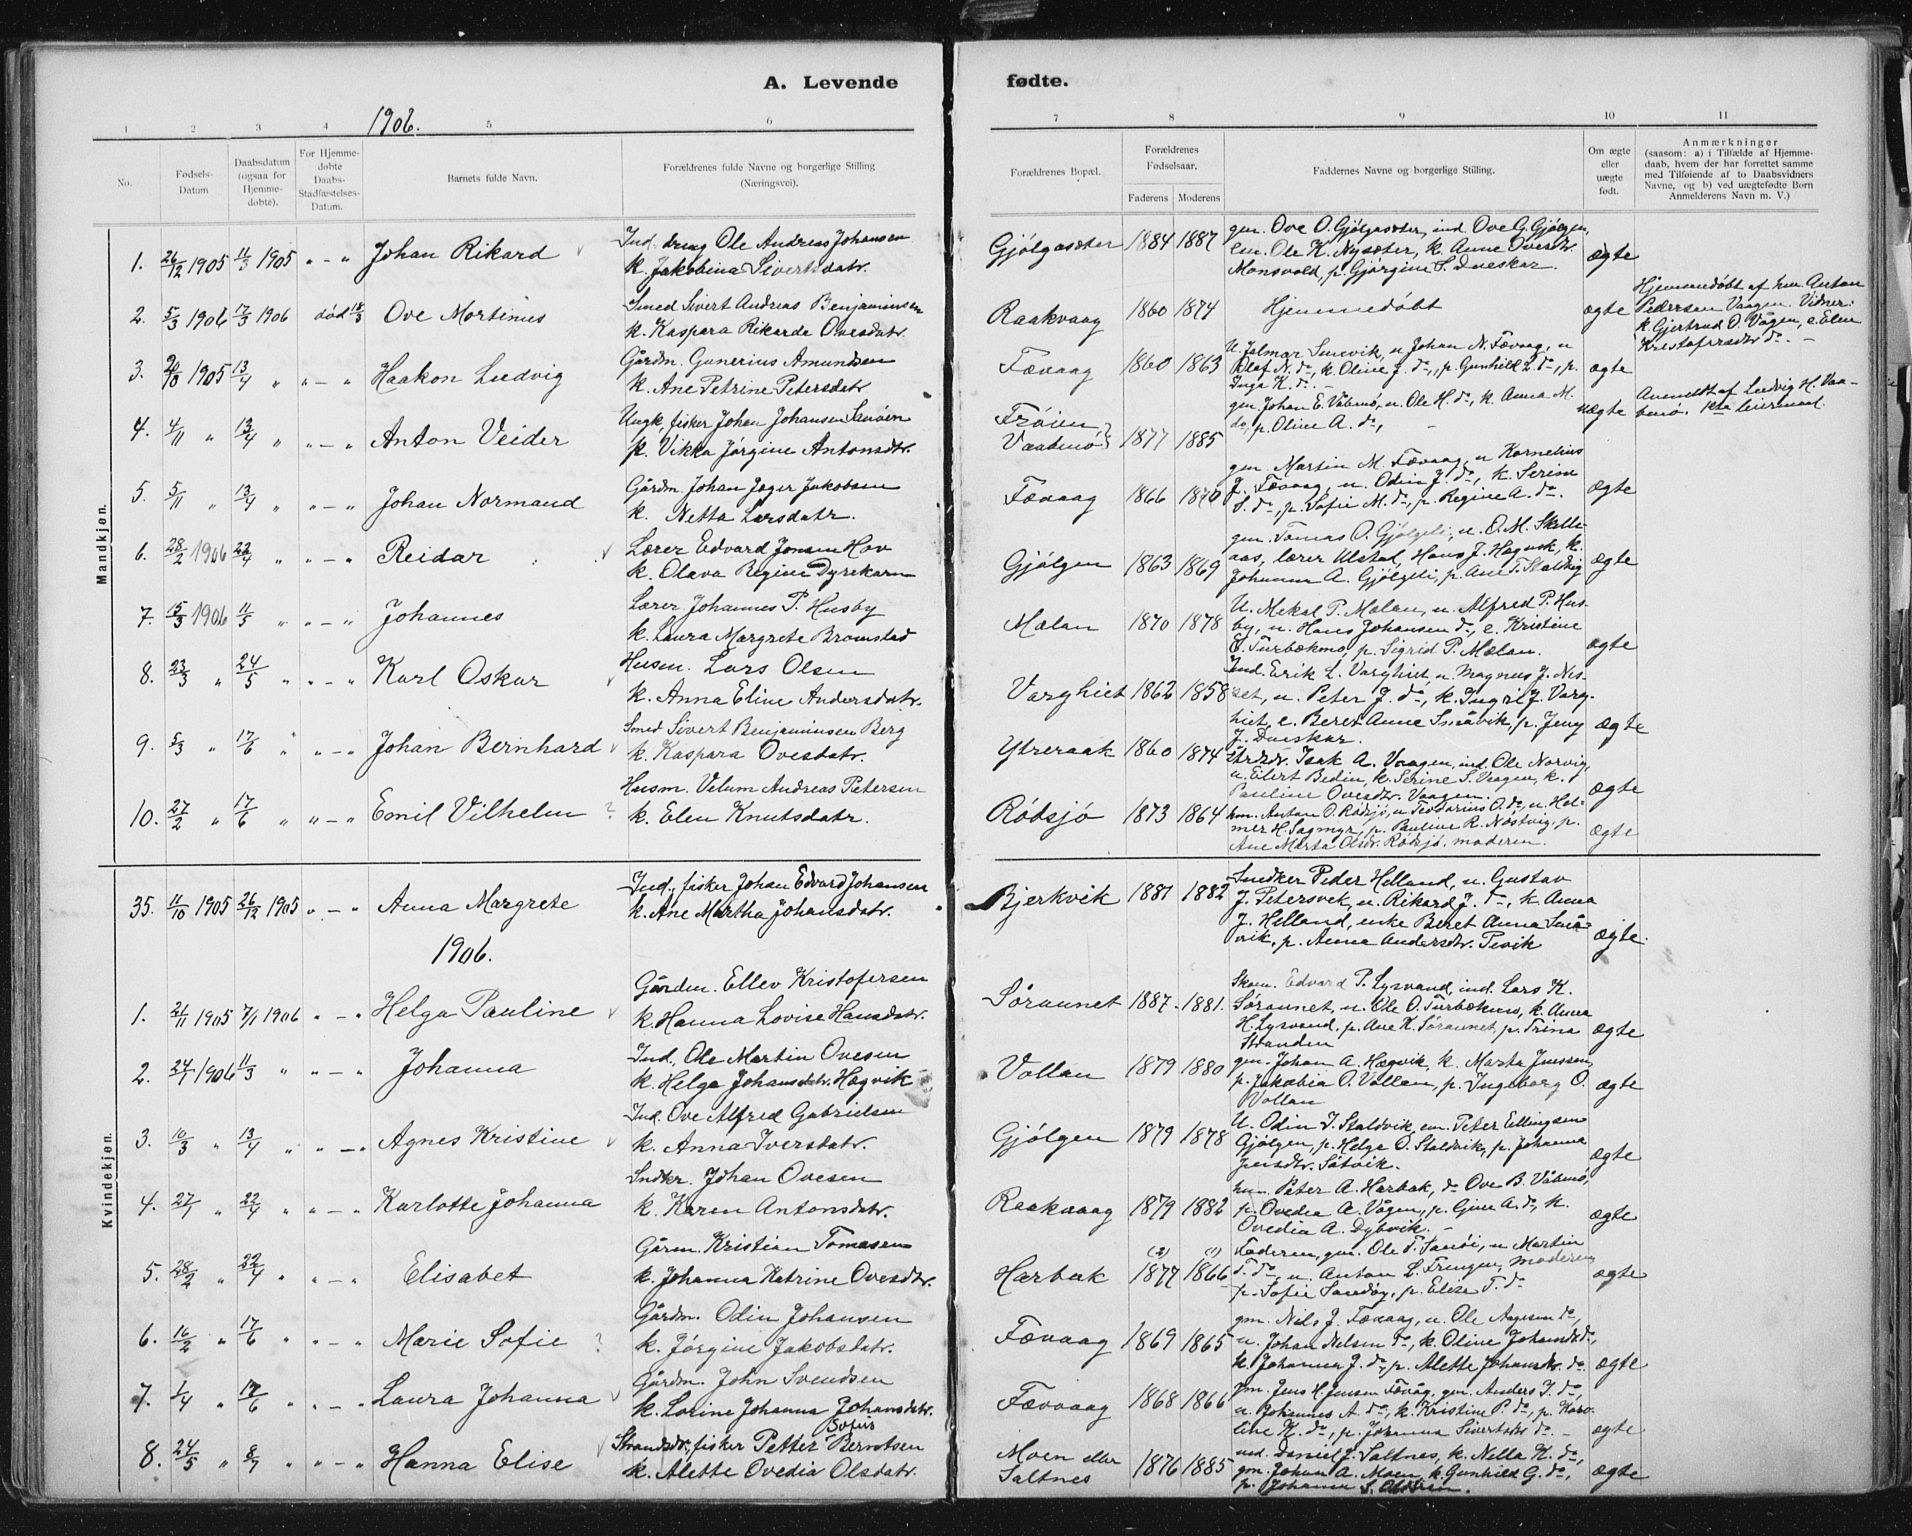 A. Levende fødte.
1906.
1 2 3 4 5 6 7 8 9 10 11
No.
Fødsels-Datum
Daabsdatum (ogsaa for Hjemme-døbte).
For Hjemme-døbte Daabs-Stadfæstelses-Datum.
Barnets fulde Navn.
Forældrenes fulde Navne og borgerlige Stilling (Næringsvei).
Forældrenes Bopæl.
Forældrenes Fødselsaar.
Faderens Moderens
Faddernes Navne og borgerlige Stilling.
Om ægte eller uægte født.
Anmærkninger
(saasom: a) i Tilfælde af Hjemme-
daab, hvem der har forrettet samme
med Tilføiende af to Daabsvidners
Navne, og b) ved uægtefødte Børn
Anmelderens Navn m. V.)
Mandkjøn.
1. 26/12 1905 11/3 1905 " - " Johan Rikard
Ind. dreng Ole Andreas Johansen
k. Jakobina Sivertsdatr.
Gjølgasæter 1884 1887
gm. Ove O. Gjølgasæter, ind. Ove G. Gjølgen,
em. Ole K. Nysæter, k. Anne Ovesdtr.
Monsvold, p. Gjørgine S. Dueskar.
ægte
2. 5/3 1906 17/3 1906 død 18/3 Ove Mortinus
Smed Sivert Andreas Benjaminsen
k. Kaspara Rikarda Ovesdatr.
Raakvaag 1860 1874 Hjemmedøbt ægte
Hjemmedøbt af hm Anton
Pedersen Vaagen. Vidner:
k. Gjertrud O. Vågen, e. Elen
Kristofersdtr do. -
3. 20/10 1905 13/4 " " - " Haakon Ludvig
Gårdm. Gunerius Amundsen
k. Ane Petrine Petersdatr.
Fævaag 1860 1863
U. Jalmar Smevik, u Johan N. Fævaag, u
Olaf N. do, k. Oline J. do, p. Gunhild L. do, p.
Inga K. do. -
ægte
4. 4/11 " 13/4 " " - " Anton Veider
Ungk., fisker Johan Johansen Sanøen
p. Vikka Jørgine Antonsdtr.
Frøien
Vaabmø 1877 1885
gm Johan E. Våbmø, u. Ole H. do, k. Anna M.
do, p. Oline A. do, -
uægte
Anmeldt af Ludvig H. Vaa-
bmø. 1ste leiermaal.
5. 5/11 " 13/4 " " - " Johan Normand
Gårdm. Johan Jøger Jakobsen
k. Netta Larsdatr.
Fævaag 1866 1870
gm. Martin M. Fævaag, u Kornelius
J. Fævaag, u. Odin J. do, k. Serine
S. do, p. Sofie M. do, p. Regine A. do.
ægte
6. 28/2 1906 22/4 " " - " Reidar
Lærer Edvard Jonsen Hov
k. Olava Regine Dyrekarn
Gjølgen 1863 1869
gm. Tomas O. Gjølgli, u. O. M. Skelli-
aas, lærer Ulstad, Hans J. Hegvik, k.
Johanna A. Gjølgli, p. Ane T. Staldvig
ægte
7. 15/3 1906 11/5 " " - " Johannes
Lærer Johannes P. Husby
k. Laura Margrete Bromstad
Mælan 1870 1878
U. Mekal P. Mælan, u. Alfred P. Hus-
by, u. Hans Johansen do, e. Kristine
E. Turbækmo, p. Sigrid P. Mælan.
ægte
8. 23/3 " 24/5 " " - " Karl Oskar
Husm. Lars Olsen
k. Anna Eline Andersdatr.
Varghiet 1862 1858
Ind. Erik L. Varghiet, u. Magnus J. Nes-
set, u. Peter J. do, k. Ingri J. Varg-
hiet, e. Beret Anne Småvik, p. Jeny
J. Dueskar.
ægte
9. 5/3 " 17/6 " " - " Johan Bernhard
Smed Sivert Benjaminsen Berg
k. Kaspara Ovesdatr.
Ytreraak 1860 1874
Strdsdr. Isak A. Vaagen, ind. Ole Norvig,
u. Eilert Bedin, k. Serine S. Vaagen, k.
Pauline Ovesdtr. Vaagen.
ægte
10. 27/2 " 17/6 " " - " Emil Vilhelm ?
Husm. Velum Andreas Petersen
k. Elen Knutsdatr.
Rødsjø 1873 1864
hm. Anton O. Rødsjø, u Teodorius O. do, u. Hel-
mer H. Sagmyr, p. Pauline R. Næstvig, p.
Ane Marta Olsdr. Rødsjø. moderen.
ægte
Kvindekjøn.
35. 11/10 1905 26/12 1905 " - " Anna Margrete
Ind., fisker Johan Edvard Johansen
k. Ane Martha Johansdatr.
Bjerkvik 1881 1882
Snedker Peder Helland, u. Gustav
J. Petersvek, u. Rikard J. do, k. Anna
J. Helland, enke Beret Anna Små-
vik, p. Anna Andersdtr. Tevik
ægte.
1906.
1. 21/11 1905 7/1 1906 " - " Helga Pauline
Gårdm. Ellev Kristofersen
k. Hanna Lovise Hansdatr.
Søraunet 1887- 1881.
Skom. Edvard P. Lysvand, ind. Lars K.
Søraunet, u. Ole O. Turbækmo, k. Anna
H. Lysvand, p. Ane K. Søraunet, p. Trina
Stranden
ægte
2. 24/1 1906 11/3 " " - " Johanna
Ind. Ole Martin Ovesen
k. Helga Johansdatr. Hegvik
Vollan 1879 1880
gm. Johan A. Hægvik, k. Marta Jenssen,
p. Jakobia O. Vollan, p. Ingeborg O.
Vollan
ægte
3. 10/3 " 13/4 " " - " Agnes Kristine
Ind. Ove Alfred Gabrielsen
k. Anna Iversdatr.
Gjølgen 1879 1878
U. Odin J. Staldvik, em. Peter Ellingsen
Gjølgen, p. Helga O. Staldvik, p. Johanna
Jensdtr. Såtvik.
ægte
4. 27/1 " 22/4 " " - " Karlotte Johanna
Sndkr. Johan Ovesen
k. Karen Antonsdatr.
Raakvaag 1879 1882
hm. Peter A. Harbak, do Ove B. Våbmø,
p. Ovedia A. Vågen, p. Gine A. do, k.
Ovedia A. Dybvik. -
ægte
5. 28/2 " 22/4 " " - " Elisabet
Gårm. Kristian Tomasen
k. Johanna Katrine Ovesdtr.
Harbak (2) 1877 (1) 1866
Faderen, gm. Ole T. Sandøi, u Martin
T. do, u. Anton L. Frengen, moderen
p. Sofie Sandøy, p. Elise T. do
ægte
6. 16/2 " 17/6 " " - " Marie Sofie ?
Gårdm. Odin Johansen
k. Jørgine Jakobsdatr.
Fævaag 1869 1865
gm. Nils J. Fævaag, u. Ole Aagesen do,
u. Johan Nelsen do, k. Oline Johansdr. do,
k. Johanna J. do, p. Alette Johansdr. do.
ægte
7. 1/4 " 17/6 " " - " Laura Johanna
Gårdm. John Svendsen
k. Lorine Johanna Johansdatr.
Fævaag 1868 1866
gm. Jens H. Jensen Fævåg, gm. Anders J. do,
u. Johannes A. do, k. Kristine P. do, p. Karo-
line K. do, p. Johanna Sivertsdr. do. -
ægte
8. 24/5 " 8/7 " " - " Hanna Elise
Strandsdr., fisker Petter Sofus Berntsen
k. Alette Ovedia Olsdatr.
Moen eller
Saltnes 1876 1885
ind. Daniel J. Saltnes, k. Nella K. do,
gm. Johan A. Moen, k. Gunhild G. do,
p. Johanna S. Olden.
ægte